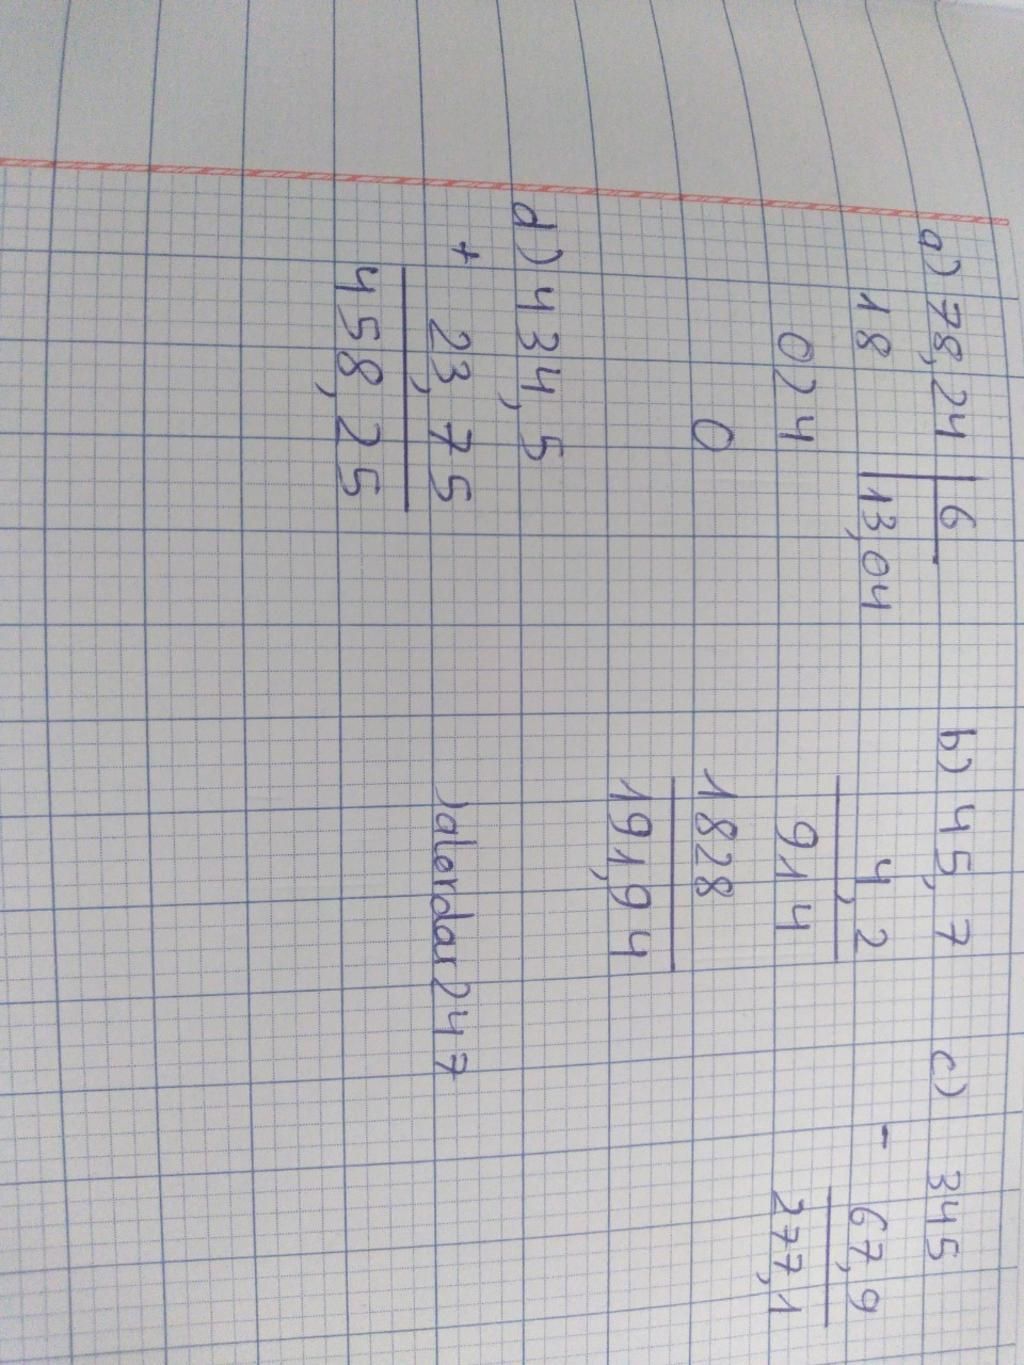 a) 78,24 | 6
18 | 13,04
024
0
b) 45,7
4,2
914
1828
191,94
c) 345
- 67,9
277,1
d) 434,5
+ 23,75
458,25
jalordar247